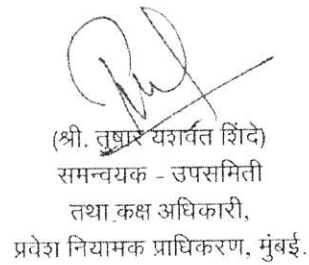 (श्री. तुषार यशवंत शिंदे)
समन्वयक - उपसमिती
तथा कक्ष अधिकारी,
प्रवेश नियामक प्राधिकरण, मुंबई.